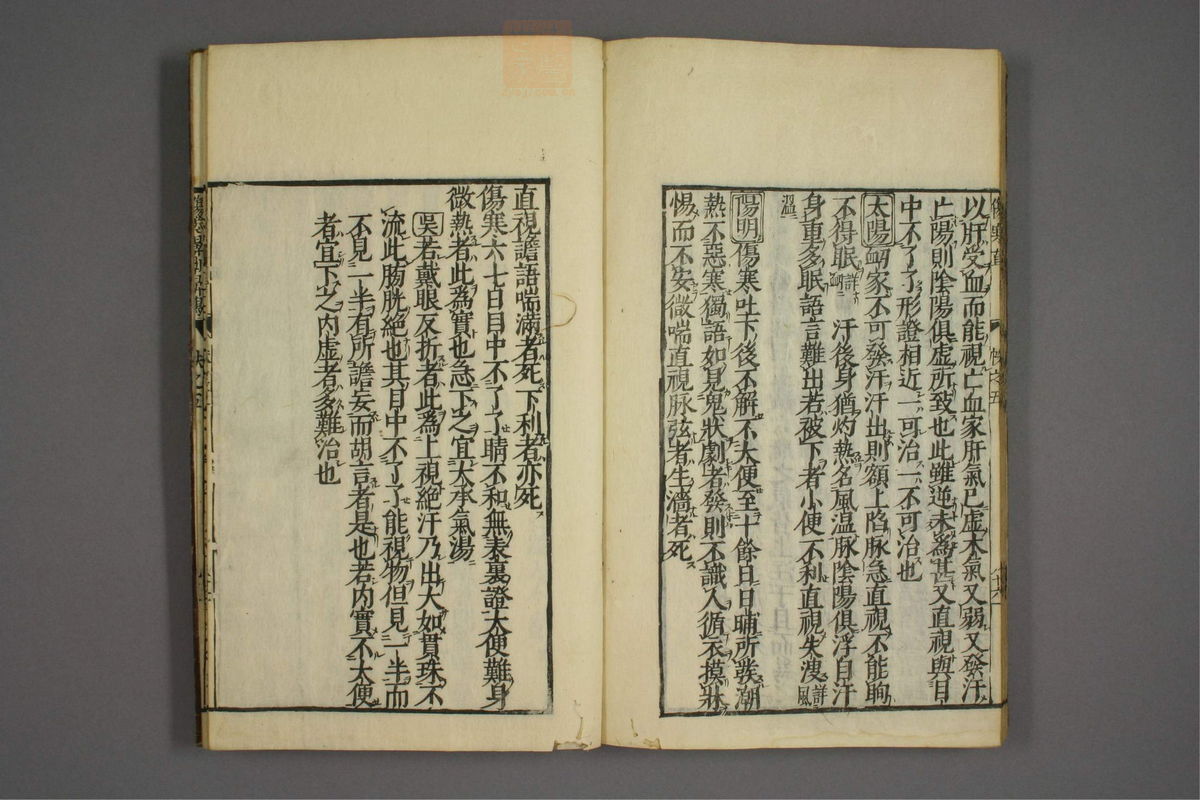 以肝受血而能視亡血家肝氣已虛木氣又弱又發汗
亡陽則陰陽俱虛所致也此雖逆未爲甚又直視與目
中不了了形證相近一可治一不可治也
太陽衂家不可發汗汗出則額上陷脉急直視不能眴
不得眠詳衂 汗後身猶灼熱名風温脉陰陽俱浮自汗
身重多眠語言難出若被下者小便不利直視失溲詳風
温
陽明傷寒吐下後不解不大便至十餘日日晡所發潮
熱不惡寒獨語如見鬼狀劇者發則不識人循衣摸牀
惕而不安微喘直視脉弦者生濇者死
直視譫語喘滿者死下利者亦死
傷寒六七日目中不了了睛不和無表裏證大便難身
微熱者此爲實也急下之宜大承氣湯
吳若戴眼反折者此爲上視絕汗乃出大如貫珠不
流此膀胱絕也其目中不了了能視物但見一半而
不見一半有所譫妄而胡言者是也若内實不大便
者宜下之内虛者多難治也